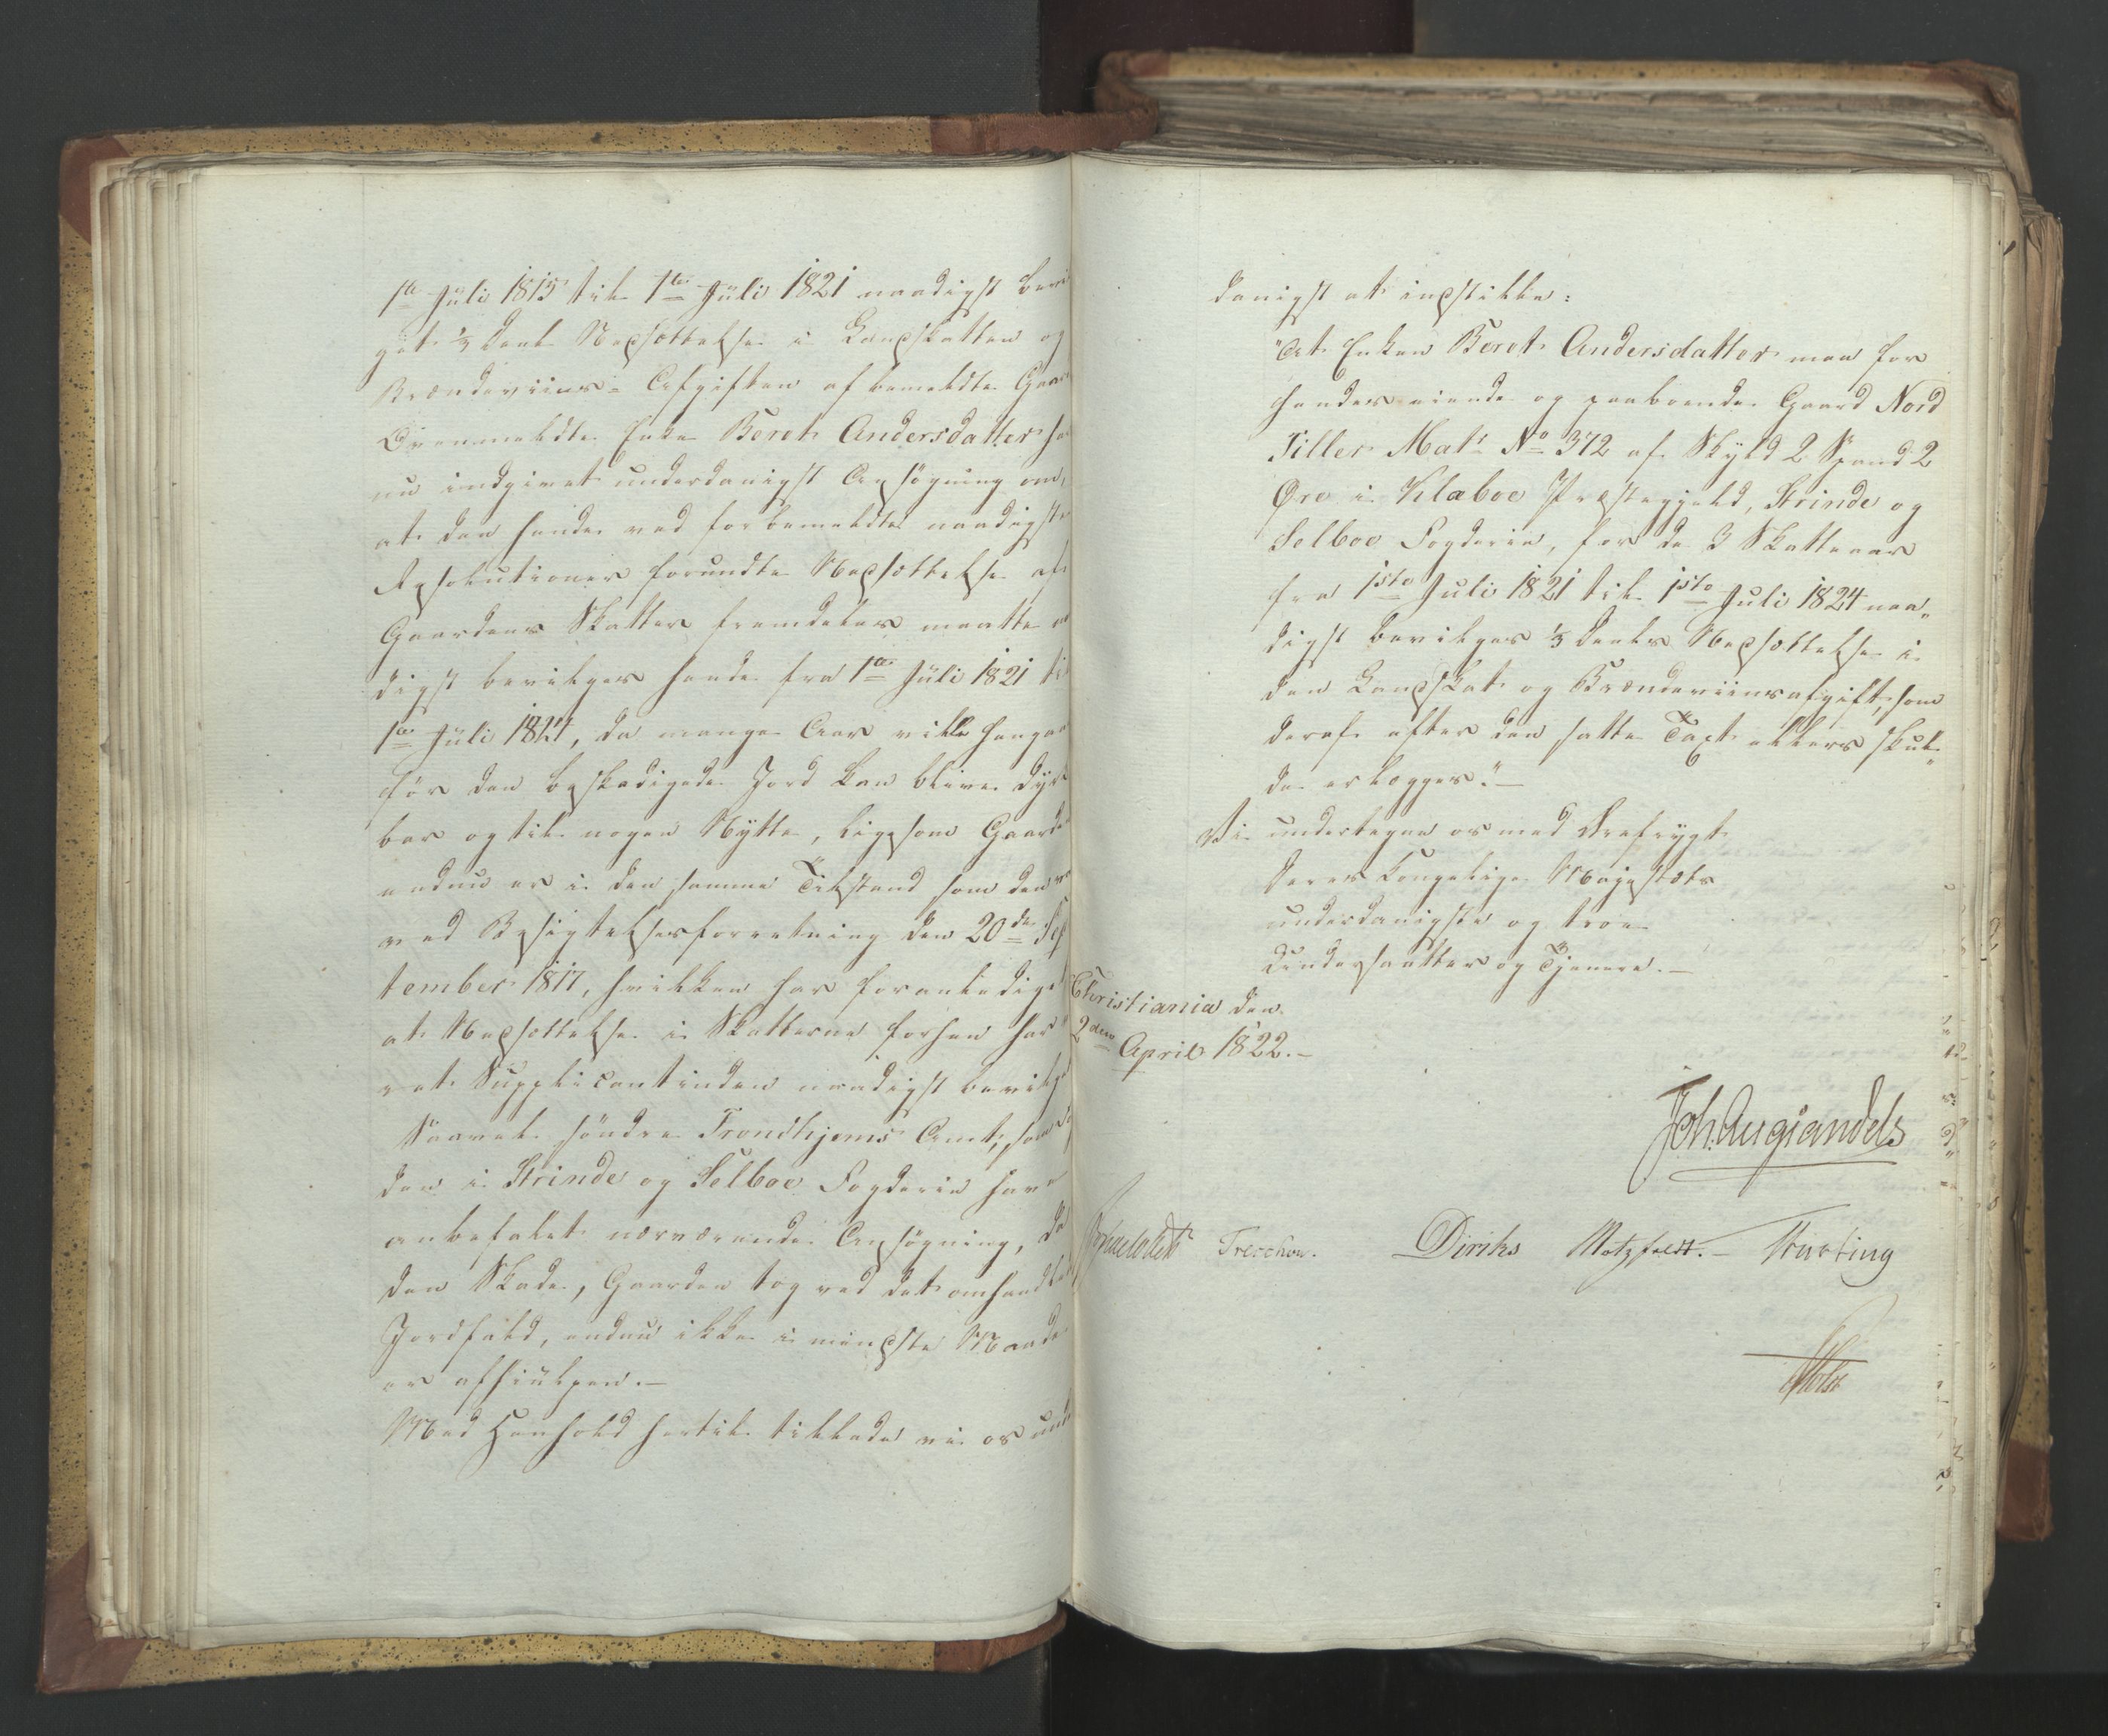 1te Juli 1815 til 1te Juli 1821 naadigst bevil
get ⅓ Deel Nedsættelse i Landskatten og
Brændeviins-Afgiften af bemeldte Gaard
Ovenmeldte Enke Beret Andersdatter ha
nu indgivet underdanigst Ansøgning om,
at den hende ved forbemeldte naadigste
Resolutioner forundte Nedsættelse af
Gaardens Skatter fremdeles maatte
digst bevilges hende fra 1te Juli 1821 til
1te Juli 1824, da mange Aar ville hengaa
før den beskadigede Jord kan blive dyrk
bar og til nogen Nytte, ligesom Gaarden
endnu er i den samme Tilstand som den
ved Besigtelsesforretning den 20de Sep
tember 1817, hvilken har foranlediget
at Nedsættelse i Skatterne forhen har
ret Supplicantinden naadigst bevilget
Saavel søndre Trondhjems Amt, som
den i Strinde og Selboe Fogderie have
anbefalet nærværende Ansøgning, da
den Skade, Gaarden tog ved det omhandlede
Jordfald, endnu ikke i mindste Maade
er afhiulpen.-
Med Henhold hertil tillade vi os und
danigst at indstille:
"At Enken Beret Andersdatter maa for
hendes eiende og paaboende Gaard Nord
Tiller Matr No 372 af Skyld 2 Spand 2
Øre i Klæboe Præstegjeld, Strinde og
Selboe Fogderie, for de 3 Skatteaar
fra 1ste Juli 1821 til 1ste Juli 1824 naa„
digst bevilges ⅓ Deels Nedsættelse i
den Landskat og Brændeviinsafgift, som
deraf efter den satte Taxt ellers skul„
de erlægges."-
Vi undertegne os med Ærefrygt
Deres Kongelige Majestæts
underdanigste og troe
Undersaatter og Tjenere.-
Christiania den
2den April 1822.-
Joh. Aug. Sandels
Treschow. Diriks Motzfeldt.-
Holst